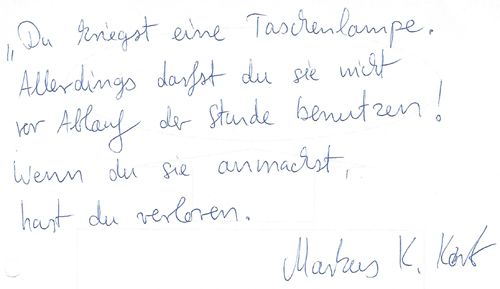 „Du kriegst eine Taschenlampe.
Allerdings darfst du sie nicht
vor Ablauf der Stunde benutzen!
Wenn du sie anmachst,
hast du verloren.
Markus K. Korb